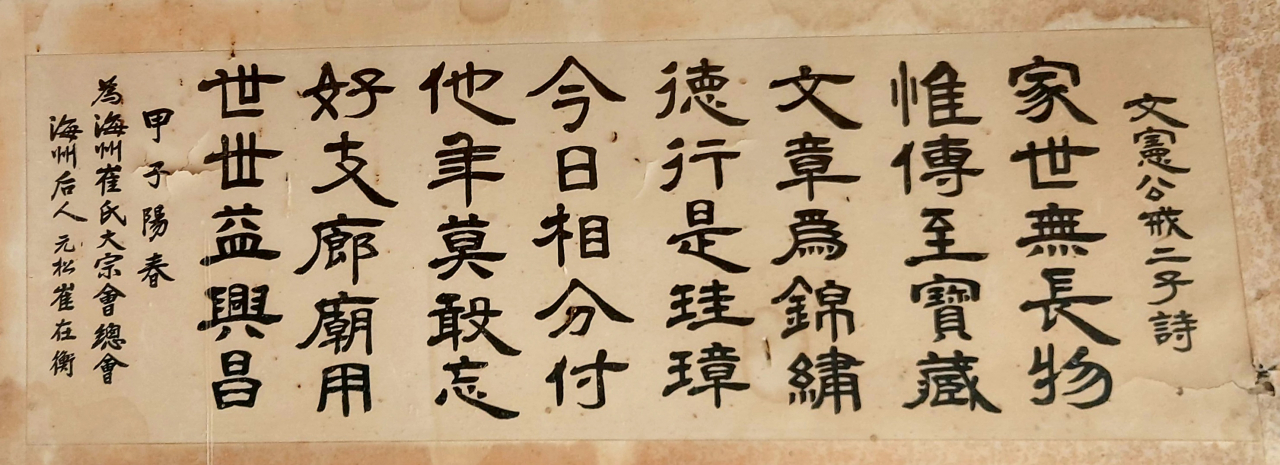 文憲公戒二子詩
家世無長物
惟傳至寶藏
文章為錦繡
德行是珪璋
今日相分付
他年莫敢忘
好支廊廟用
世世益興昌
甲子陽春
為海州崔氏大宗會總會
海州后人 元松崔在衡